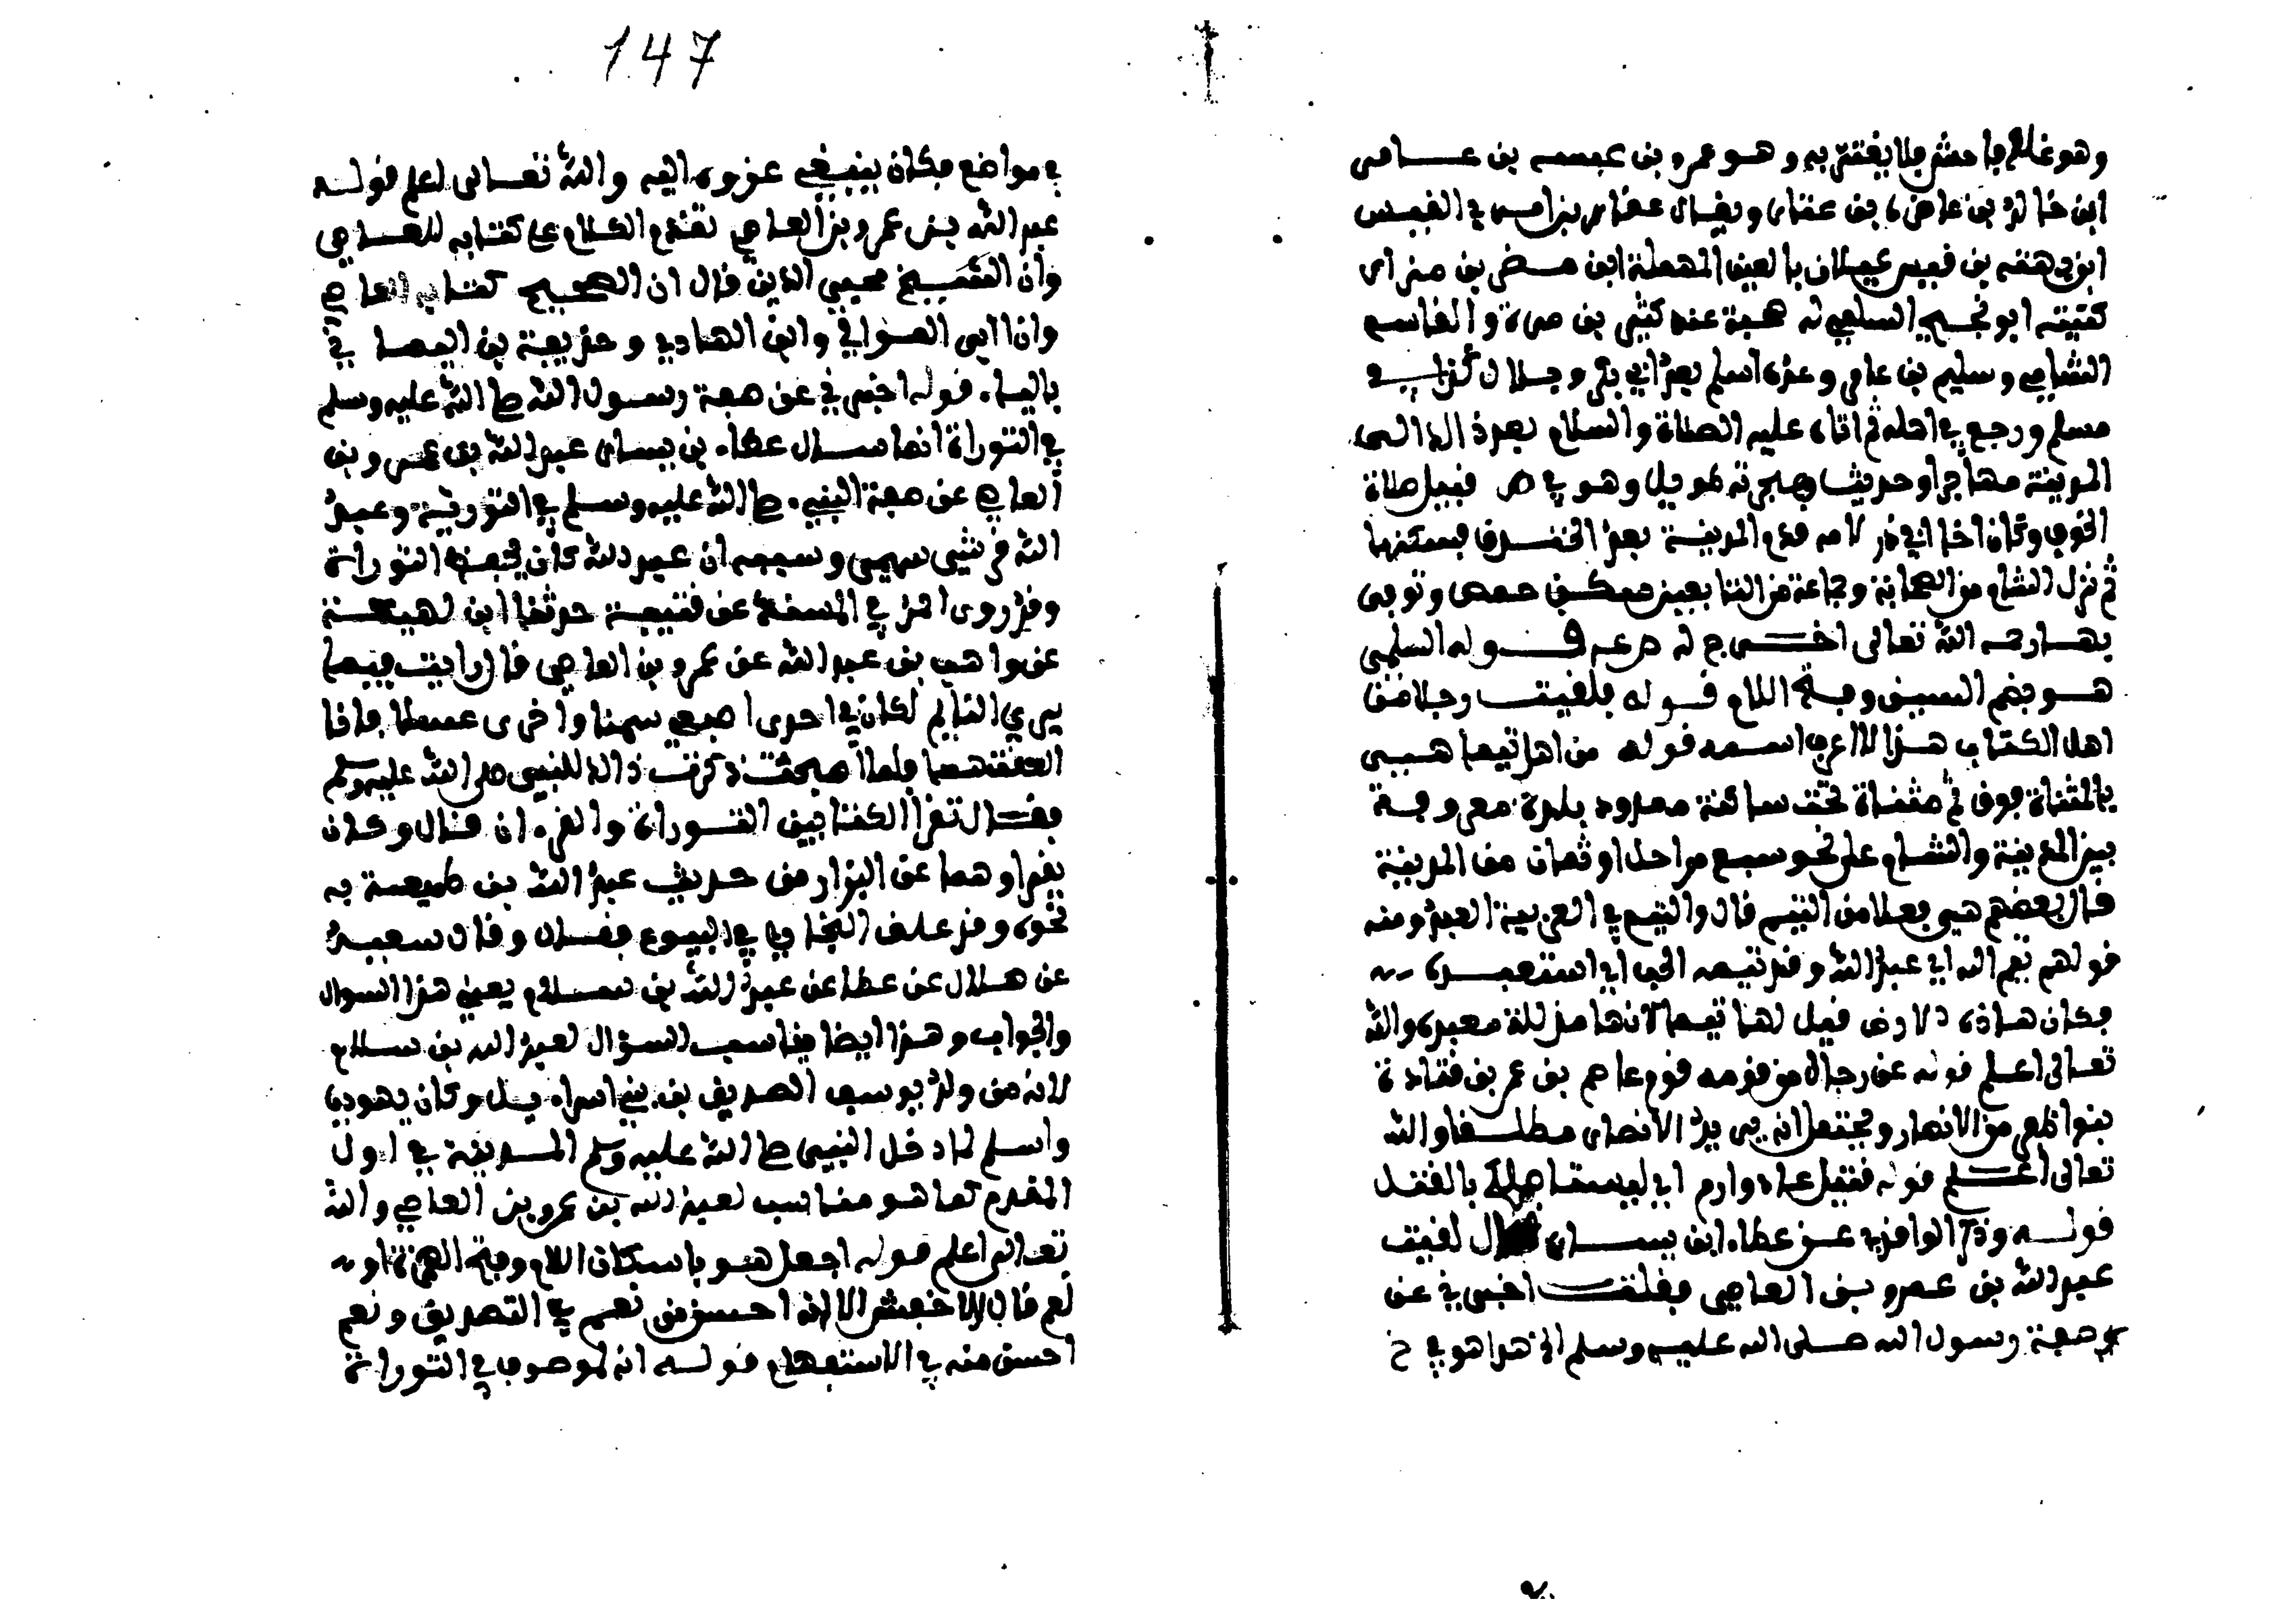 147
وهو غلط فاحش فلا يغتر به وهو عمرو بن عبسه بن عامر
ابن خالد بن غاضرة بن عتاب ويقال غفار بن امرئ القيس
ابن بهثه بن قيس عيلان بالعين المهملة ابن مضر بن نزار
كنيته ابو نجيح السلمي له صحبة عنه كثير بن مرة والقاسم
الشامي وسليم بن عامر وعدة اسلم بعد ابي بكر وبلال كذا في
مسلم ورجع الى اهله ثم اتاه عليه الصلاة والسلام بعد ذالك الى
المدينة مهاجرا وحديث هجرته طويل وهو في م قبيل صلاة
الخوف وكان اخا ابي ذر لامه قدم المدينة بعد الخندق فسكنها
ثم نزل الشام من الصحابة وجماعة من التابعين سكن حمص وتوفي
بها رحمه الله تعالى اخرج له م عه قوله السلمي
هو بضم السين وفتح اللام قوله فلقيت رجلا من
اهل الكتاب هذا لا اعرف اسمه قوله من اهل تيما هي
بالمثناة فوق ثم مثناة تحت ساكنة ممدود بلدة معروفة
بين المدينة والشام على نحو سبع مراحل او ثمان من المدينة
قال بعضهم هي فعلا من التيم قال والتيم في العربية العبد ومنه
قولهم تيم الله اي عبد الله وقد تيمه الحب اي استعبده
فكان هاذه الارض قيل لها تيما لانها مذللة معبدة والله
تعالى اعلم قوله عن رجال من قومه قوم عاصم بن عمر بن قتادة
بنوا ظفر من الانصار ويحتمل انه يريد الانصار مطلقا والله
تعالى اعلم قوله قتيل عاد وارم اي ليستاصلكم بالقتل
قوله وذكر الواقدي عن عطاء ابن يسار قال لقيت
عبد الله بن عمرو بن العاصي فقلت اخبرني عن
صفة رسول الله صلى الله عليه وسلم الخ هذا هو في خ
في مواضع فكان ينبغي عزوه اليه والله تعالى اعلم قوله
عبد الله بن عمرو بن العاصي تقدم الكلام على كتابه للعاصي
وان الشيخ محيي الدين قال ان الصحيح كتابه العاصي
وان ابي الموالي وابن الهادي وحذيفة بن اليمان في
بالياء قوله اخبرني عن صفة رسول الله صلى الله عليه وسلم
في التوراة انما سال عطاء بن يسار عبد الله بن عمرو بن
العاصي عن صفة النبي صلى الله عليه وسلم في التورية وعبد
الله قرشي سهمي وسببه ان عبد الله كان يحفظ التوراة
وقد روى احمد في المسند عن قتيبة حدثنا ابن لهيعة
عن واهب بن عبد الله عن عمرو بن العاصي قال رايت فيما
يرى النايم لكان في احدى اصبعي سمنا واخرى عسلا فانا
العقهما فلما اصبحت ذكرت ذالك للنبي صلى الله عليه وسلم
فقال تقرا الكتابين التوراة والقرءان قال وكان
يقراوهما عن البزار من حديث عبد الله بن لهيعة به
نحوه وقد علق البخاري في البيوع فقال وقال سعيد
عن هلال عن عطا عن عبد الله بن سلام يعني هذا السوال
والجواب وهذا ايضا يناسب السؤال لعبد الله بن سلام
لانه من ولد يوسف الصديق بن بني اسراءيل وكان يهوديا
واسلم لما دخل النبي صلى الله عليه وسلم المدينة في اول
المقدم كما هو مناسب لعبد الله بن عمرو بن العاصي والله
تعالى اعلم قوله اجعل هو باسكان اللام وفتح الهمزة او
نعم قال الاخفش الا انه احسن من نعم في التصديق ونعم
احسن منه في الاستفهام قوله انه لموصوف في التوراة